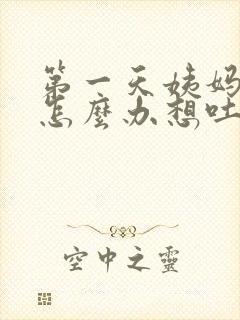 第一天姨妈
怎麼办想吐
空中之靈